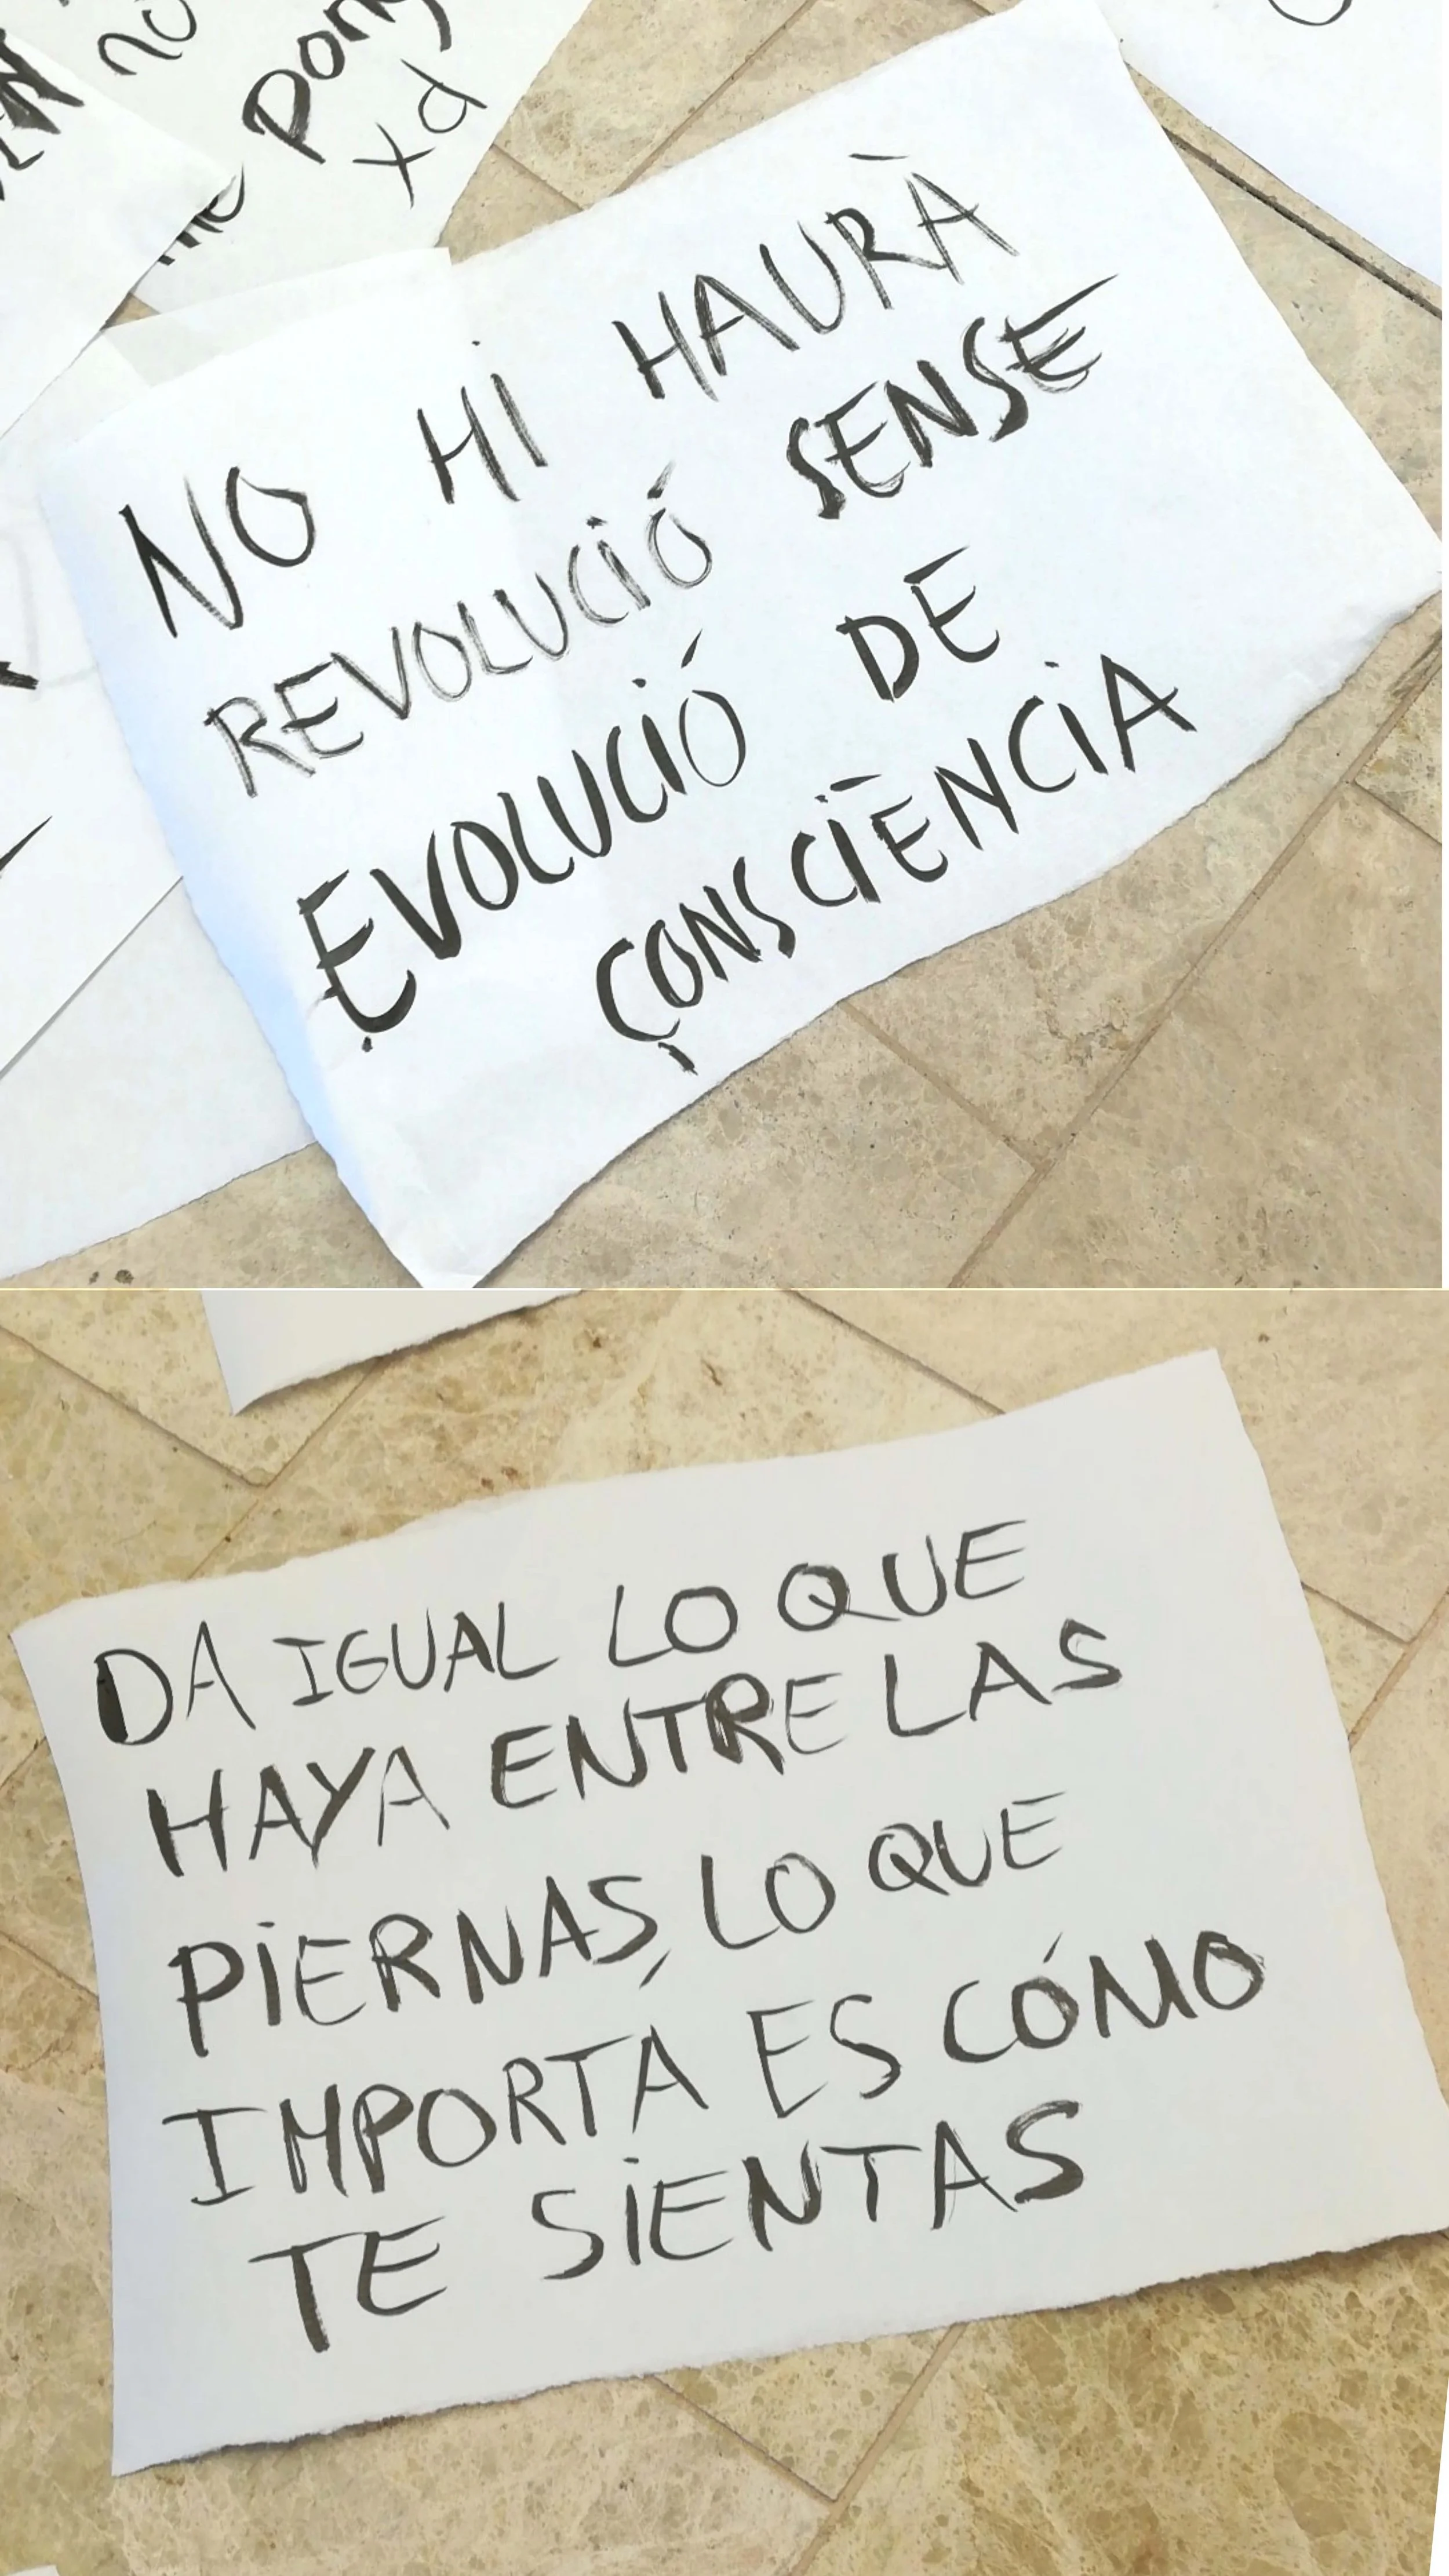 no
xd
NO HI HAURÀ
REVOLUCIÓ SENSE
EVOLUCIÓ DE
CONSCIÈNCIA
DA IGUAL LO QUE
HAYA ENTRE LAS
PIERNAS, LO QUE
IMPORTA ES CÓMO
TE SIENTAS